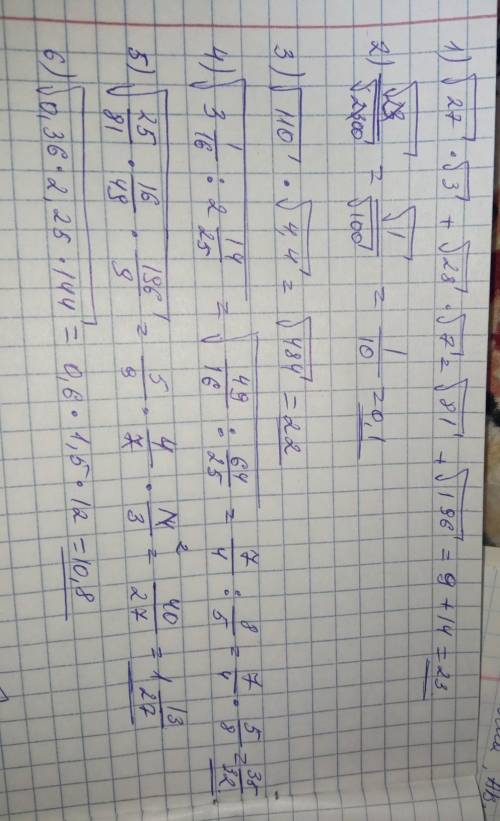 1) √27 · √3 + √28 · √7 = √81 + √196 = 9 + 14 = 23
2) √23 / √2300 = √1 / √100 = 1/10 = 0,1
3) √110 · √4,4 = √484 = 22
4) √(3 1/16 : 2 14/25) = √(49/16 : 64/25) = 7/4 : 8/5 = 7/4 · 5/8 = 35/32
5) √(25/81 · 16/49 · 196/9) = 5/9 · 4/7 · 14/3 2 = 40/27 = 1 13/27
6) √(0,36 · 2,25 · 144) = 0,6 · 1,5 · 12 = 10,8